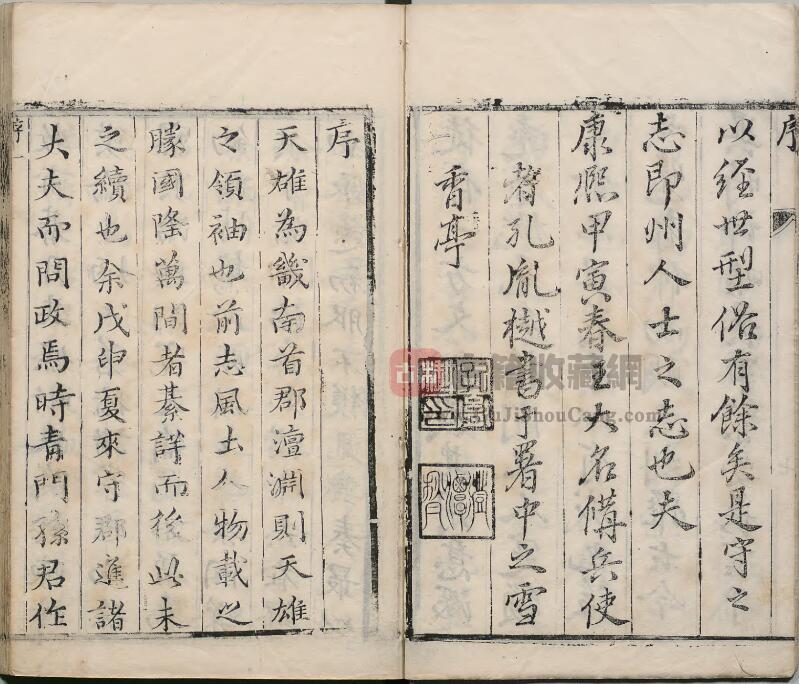 序
以經世型俗有餘矣是守之
志即州人士之志也夫
康熙甲寅春王大名備兵使
者孔胤樾書于署中之雪
香亭
序
天雄為畿南首郡澶淵則天雄
之領袖也前志風土人物載之
朦國隆萬間者綦詳而後此未
之續也余戊申夏來守郡進諸
大夫而問政焉時青門孫君作
序一
古籍收藏網
GuJiShouCang.com